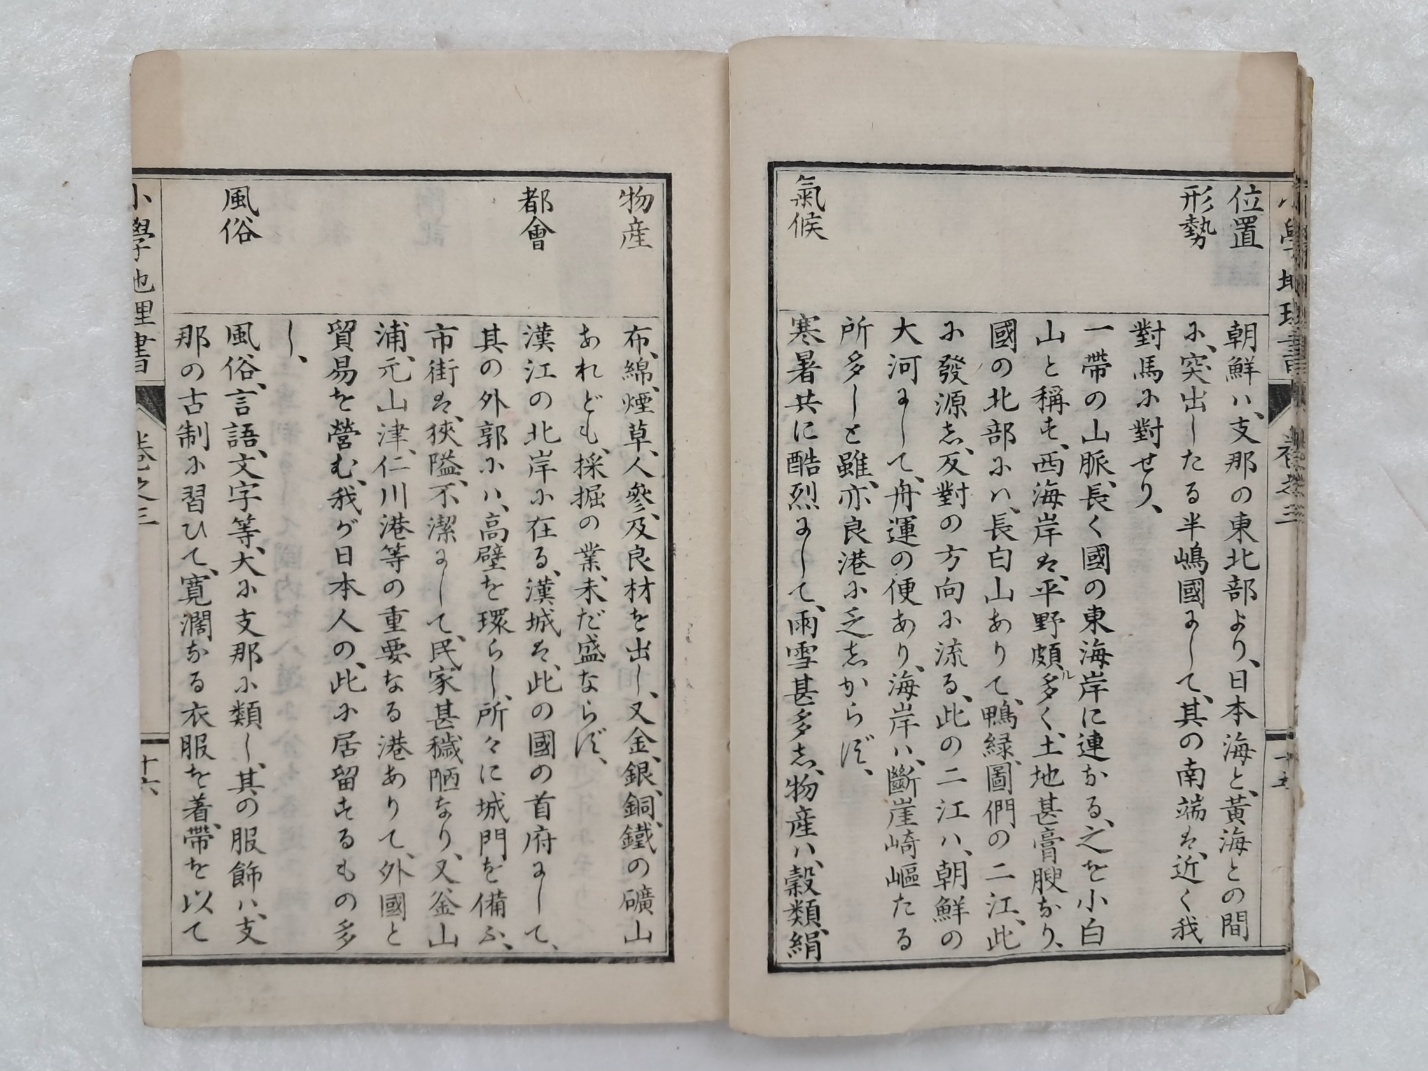 小學地理書 卷之三
位置
形勢
氣候
朝鮮ハ、支那の東北部より、日本海と、黄海との間
に、突出したる半嶋國にして、其の南端は、近く我
對馬に對せり、
一帶の山脈、長く國の東海岸に連なる、之を小白
山と稱す、西海岸は、平野頗ル多く、土地甚膏腴なり、
國の北部にハ、長白山ありて、鴨緑、圖們の二江、此
に發源し、反對の方向に流る、此の二江ハ、朝鮮の
大河にして、舟運の便あり、海岸ハ、斷崖崎嶇たる
所多しと雖、亦良港に乏しからず、
寒暑共に酷烈にして、雨雪甚多し、物産ハ、穀類、絹
物産
都會
風俗
布、綿、煙草、人參、及良材を出し、又金、銀、銅、鐵の礦山
あれども、採掘の業、未だ盛ならず、
漢江の北岸に在る、漢城は、此の國の首府にして、
其の外郭にハ、高壁を環らし、所々に城門を備ふ、
市街は、狹隘、不潔にして、民家甚穢陋なり、又釜山
浦、元山津、仁川港等の重要なる港ありて、外國と
貿易を營む、我が日本人の、此に居留するもの多
し、
風俗、言語、文字等、大に支那に類し、其の服飾ハ、支
那の古制に習ひて、寛濶なる衣服を著、帶を以て
小學地理書 卷之三 十六